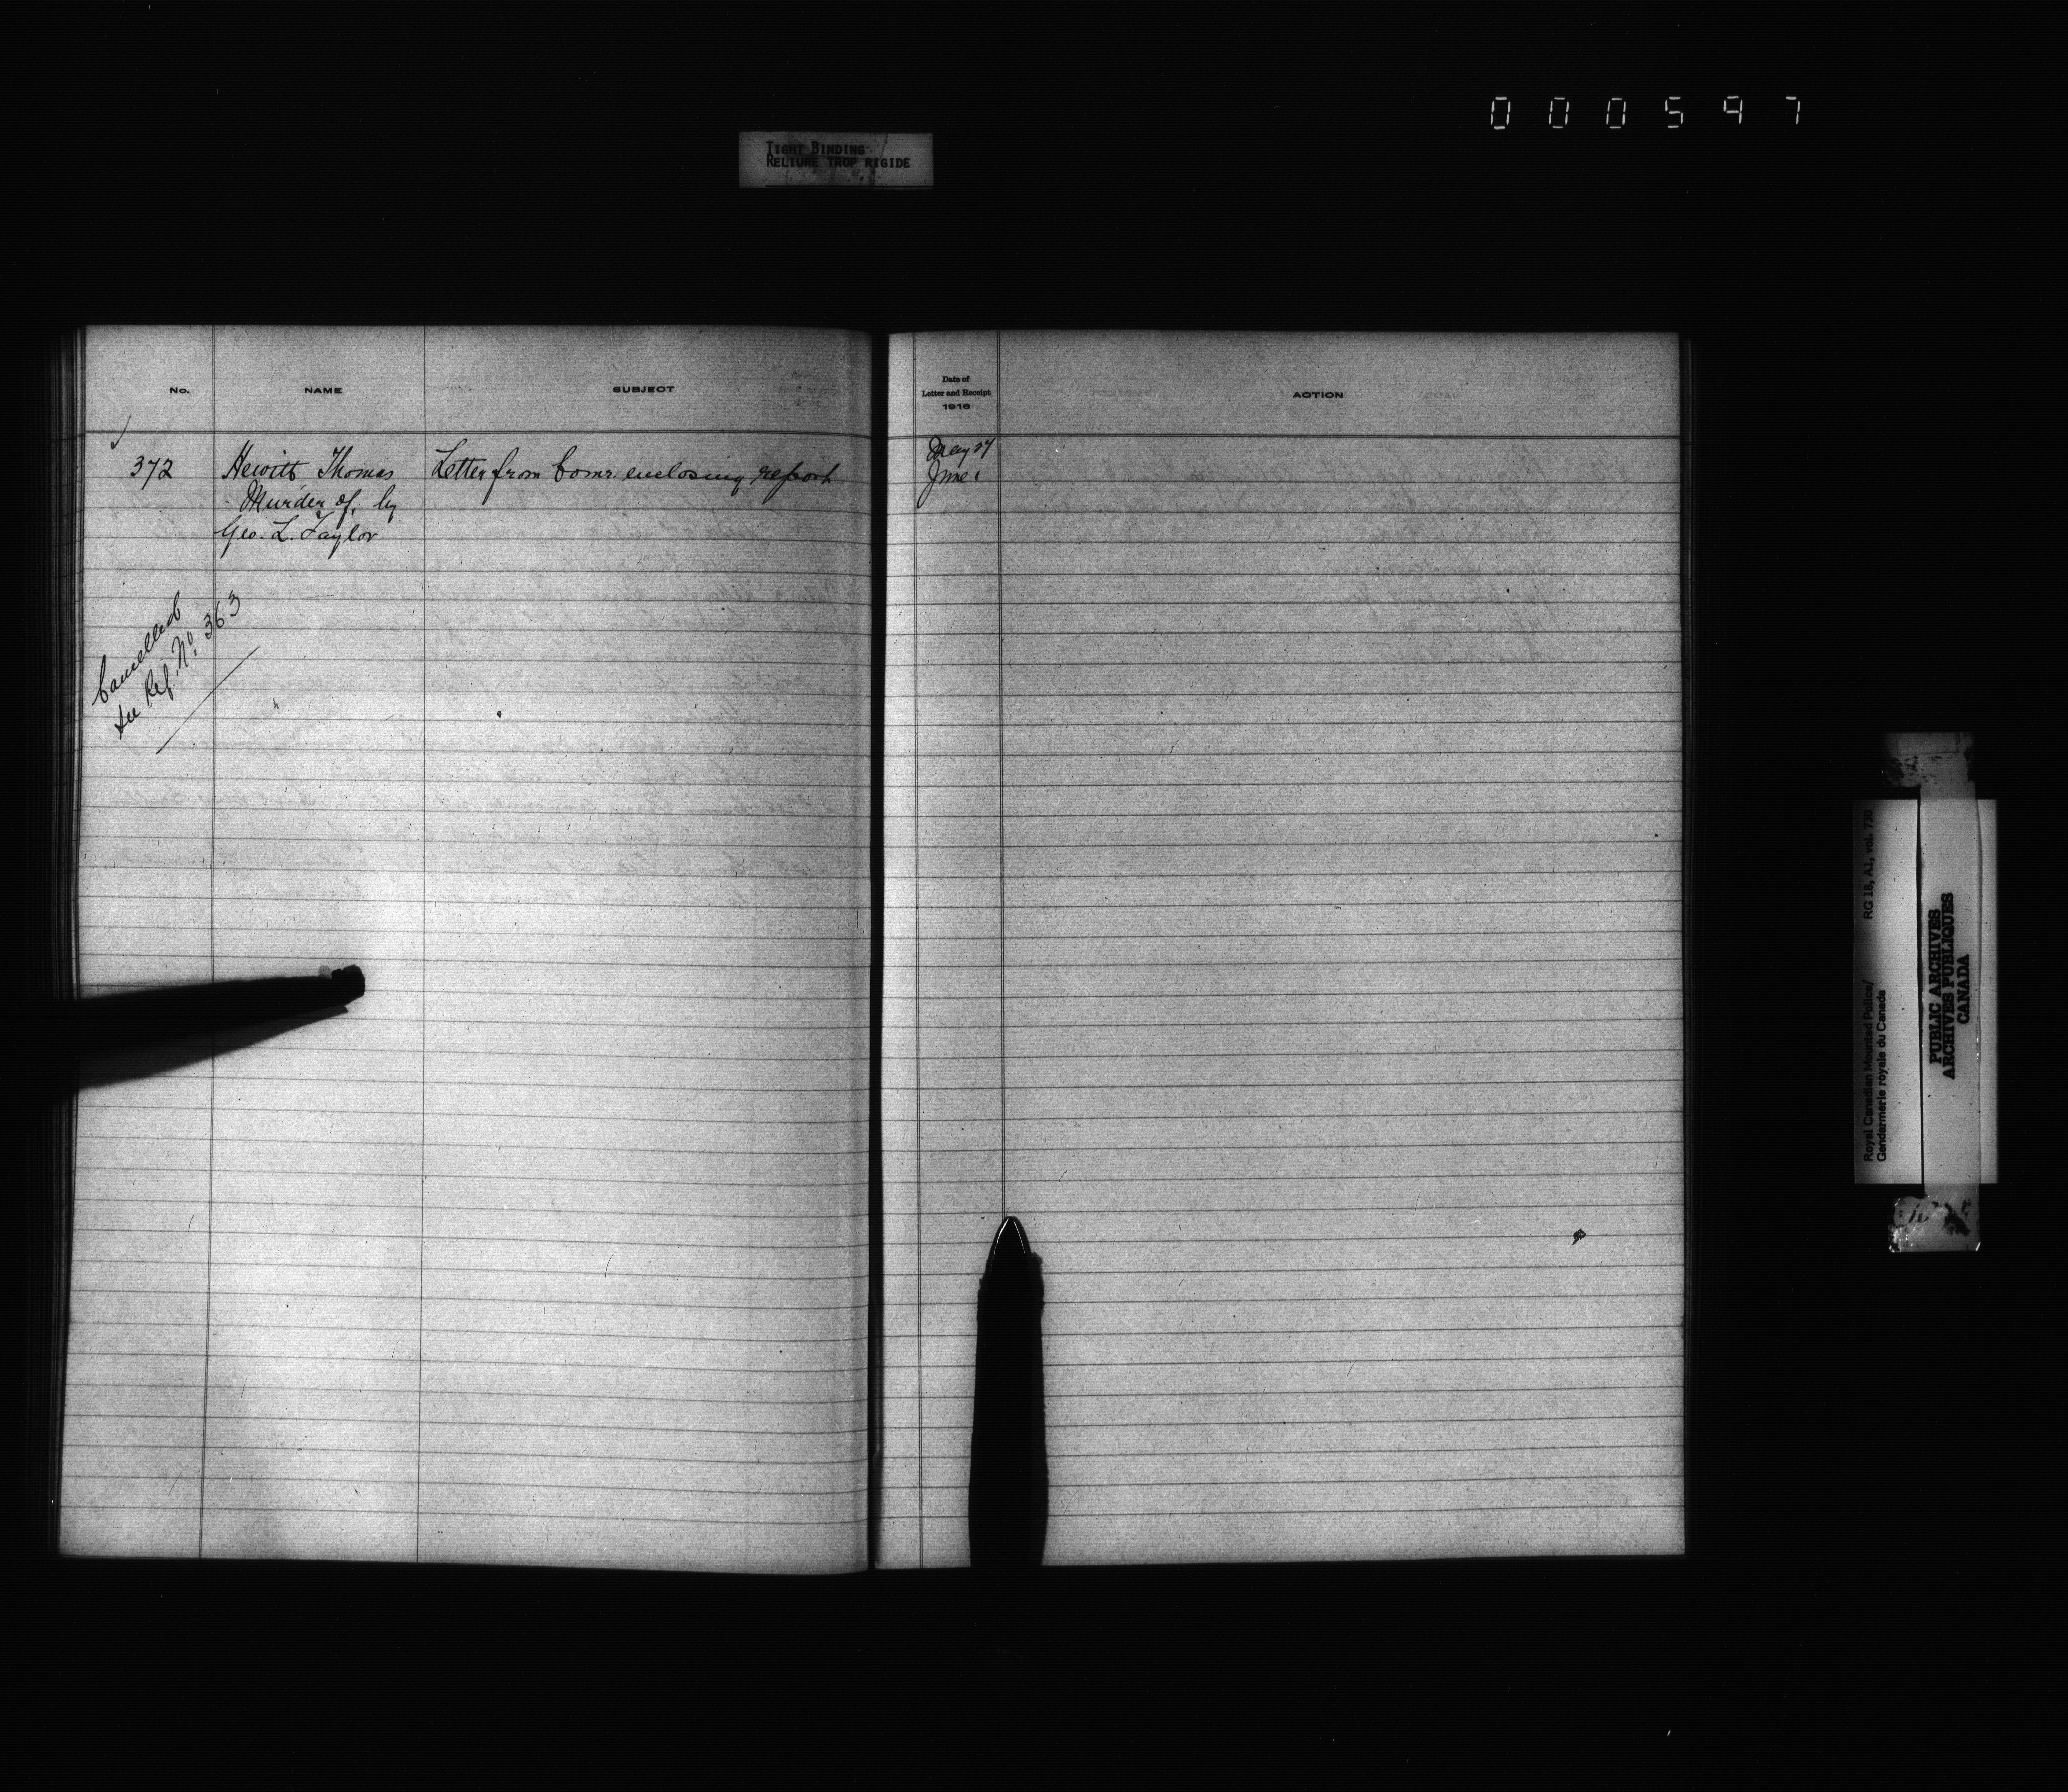 000597
TIGHT BINDING
RELIURE TROP RIGIDE
No.
NAME
SUBJECT
Date of
Letter and Receipt
1916
ACTION
372
Hewitt Thomas
Murder of, by
Geo. L. Taylor
Letter from Comr. enclosing report
May 27
June 1
Cancelled
see Ref. No. 363
Royal Canadian Mounted Police/
Gendarmerie royale du Canada
RG 18, A1, vol. 730
PUBLIC ARCHIVES
ARCHIVES PUBLIQUES
CANADA